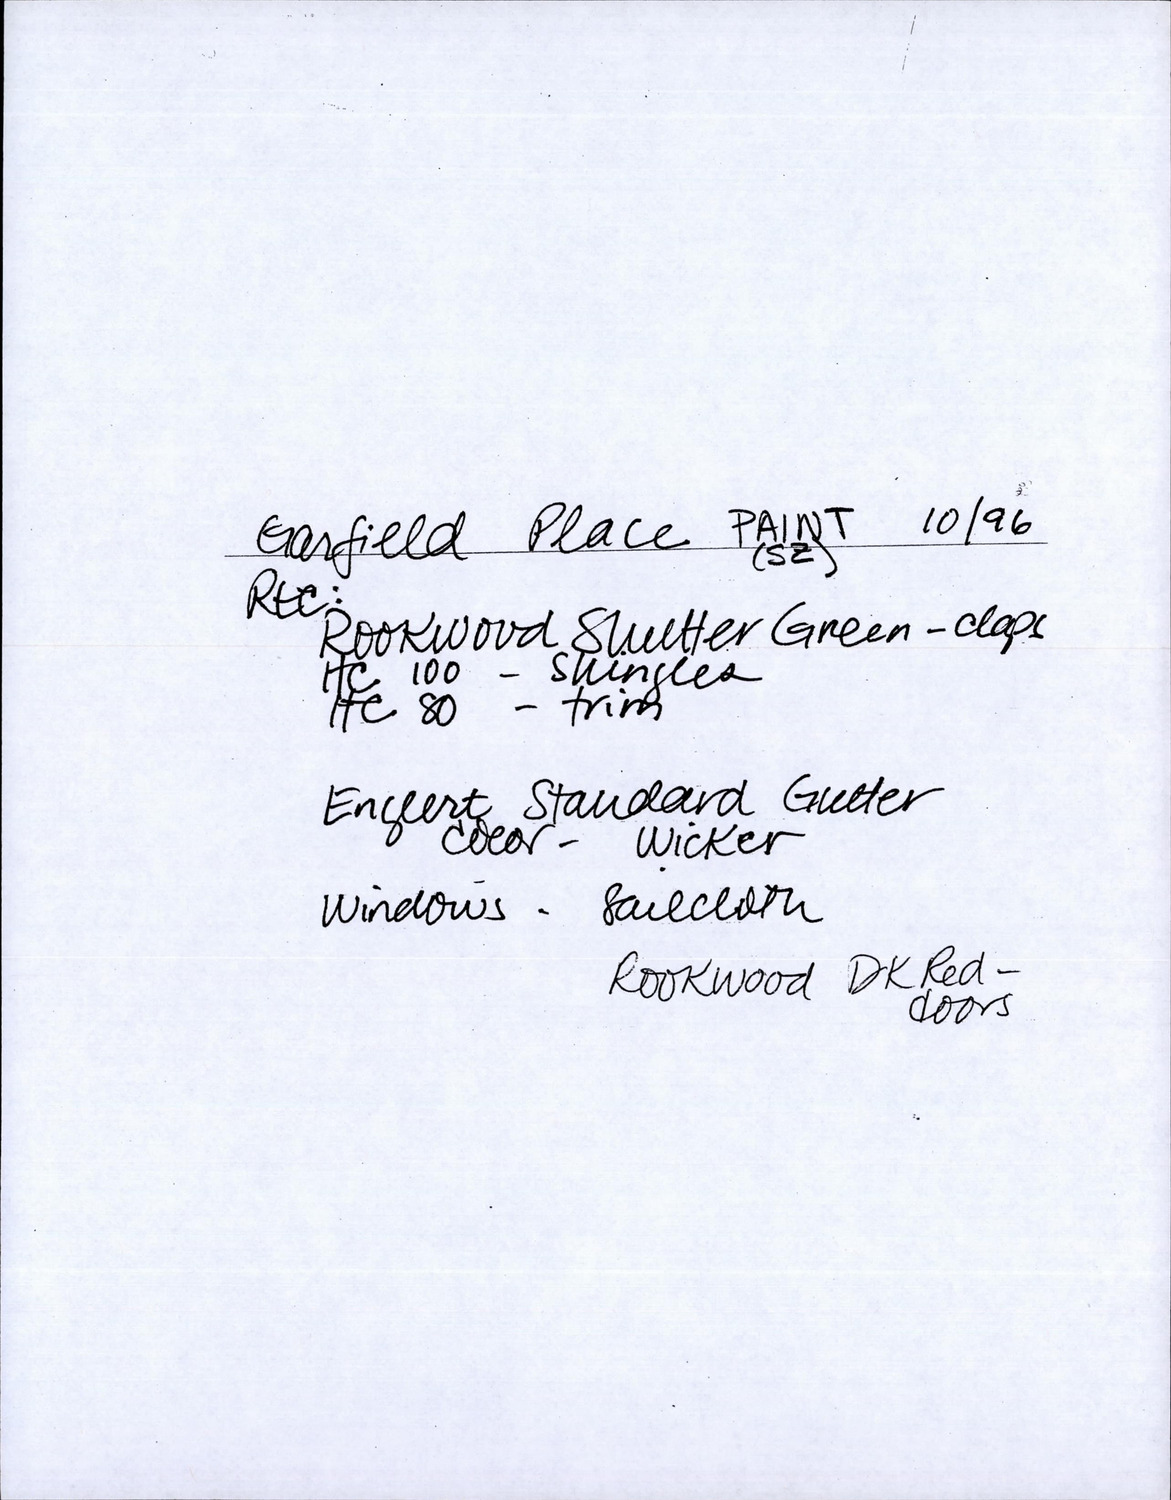 Garfield Place PAINT 10/96
(SZ)
Rec:
Rookwood Shutter Green - claps
HC 100 - Shingles
HC 80 - trim
Englert Standard Gutter
color - Wicker
Windows - Sailcloth
Rookwood DK Red -
doors